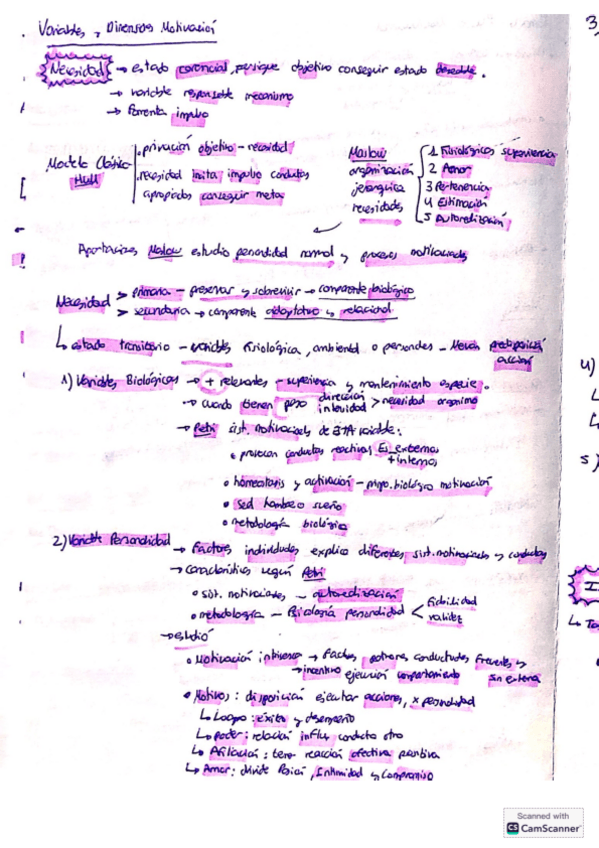 Variables y Dimensión Motivación
Necesidad → estado carencial, persigue objetivo conseguir estado deseable.
→ variable responsable mecanismo
→ fomenta impulso
Modelo Clásico Hull
privación objetivo - necesidad
necesidad incita impulso conductas
apropiadas conseguir meta
Maslow
organización
jerárquica
necesidades
1 Fisiológicas supervivencia
2 Amor
3 Pertenencia
4 Estimación
5 Autorealización
Aportaciones Maslow estudio personalidad normal y procesos motivacionales
Necesidad > primaria - preservar y sobrevivir → componente biológico
> secundaria → componente adaptativo y relacional
↳ estado transitorio - variables fisiológica, ambiental o personales - predisposición
acción
1) Variables Biológicas → + relevantes - supervivencia y mantenimiento especie.
→ cuando tienen peso dirección
intensidad > necesidad organismo
→ Petri sist. motivacionales de esta variable:
• provocan conductas reactivas Es. externos
+ internos
• homeostasis y activación - biológico motivación
• sed hambre o sueño
• metodología biológica
2) Variable Personalidad → Factores individuales explica diferentes sist. motivacionales y conductas
→ características según Petri
• sist. motivacionales - autorealización
• metodología - Psicología personalidad < fiabilidad
validez
→ estudió
• Motivación intrínseca →
→ incentivo ejecución comportamiento sin externa
• Motivos: disposición ejecutar acciones, x personalidad
↳ Logro: éxito y desempeño
↳ poder: relación influy conducta otro
↳ Afiliación: tener reacción afectiva positiva
↳ Amor: divide Pasión, Intimidad y Compromiso
3
4)
5)
Scanned with
CS CamScanner